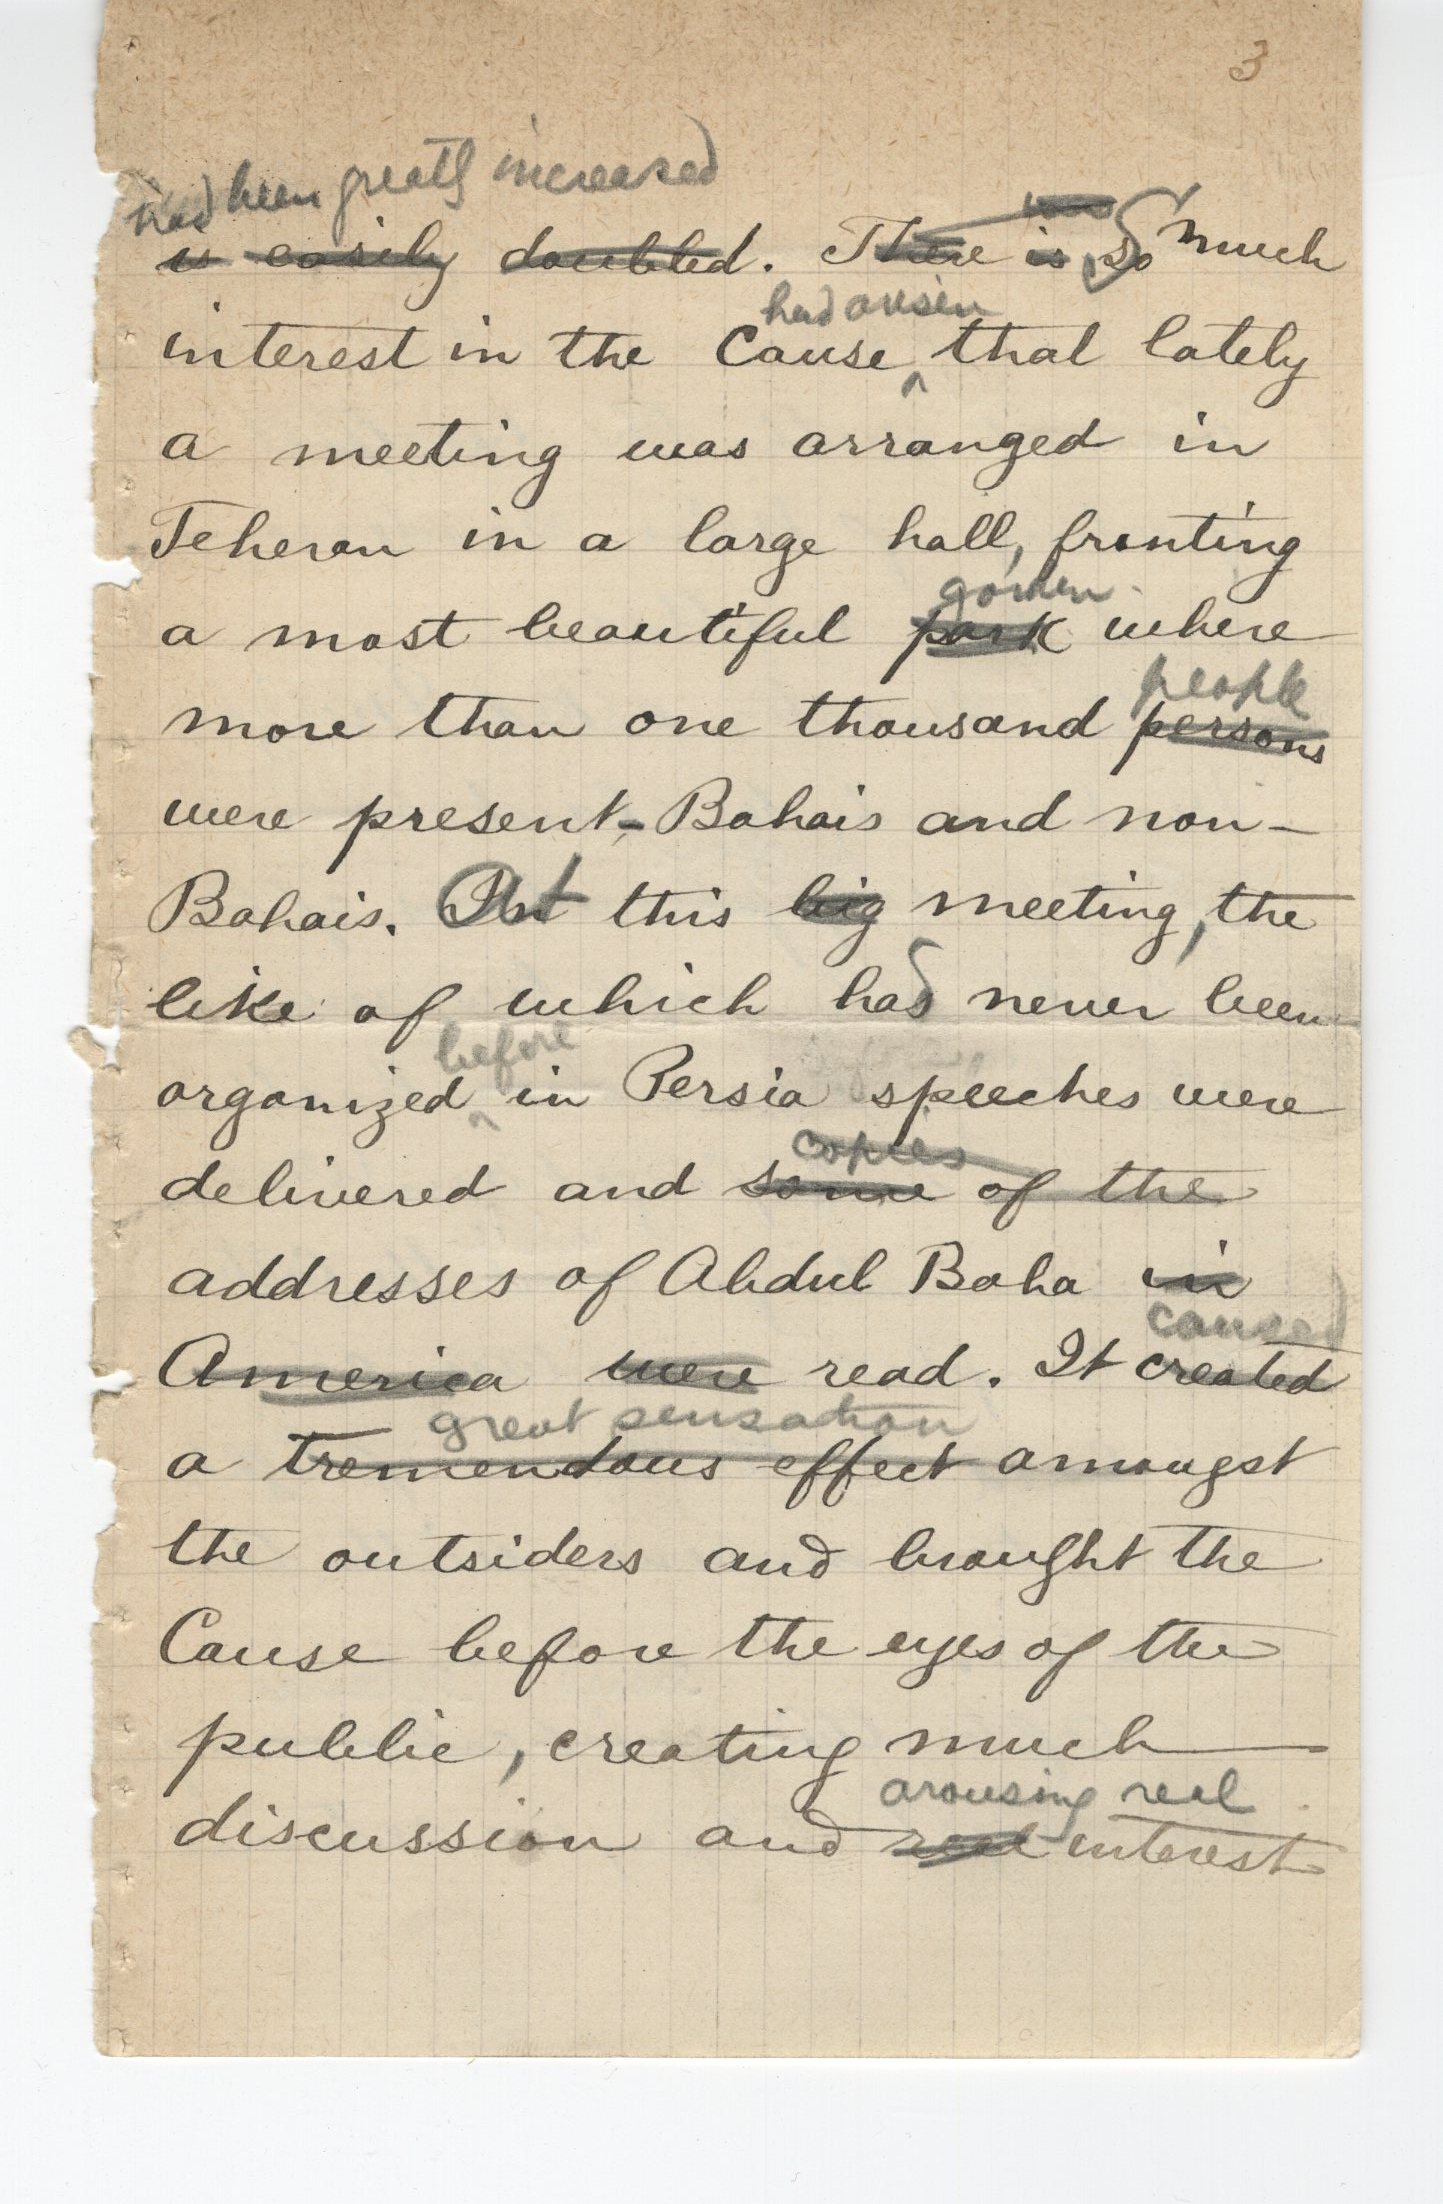 3
had been greatly increased
is easily doubled. There is so much
was So
had arisen
interest in the Cause, that lately
a meeting was arranged in
Teheran in a large hall, fronting
garden
a most beautiful park where
people
more than one thousand persons
were present - Bahais and non-
Bahais. At this big meeting, the
like of which had never been
before
organized in Persia speeches were
copies
delivered and some of the
addresses of Abdul Baha in
caused
America were read. It created
great sensation
a tremendous effect amongst
the outsiders and brought the
Cause before the eyes of the
public, creating much
arousing real
discussion and real interest